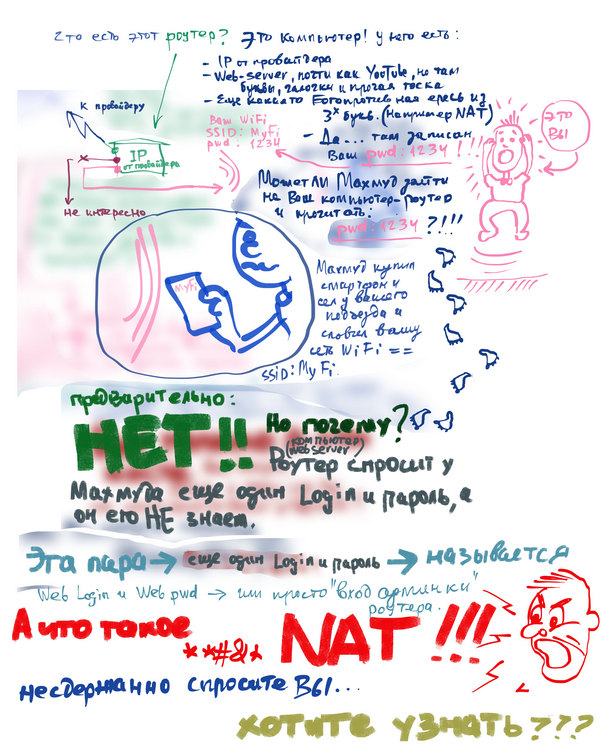 Что есть этот роутер? Это компьютер! у него есть:
- IP от провайдера
- Web-server, почти как YouTube, но там
буквы, галочки и прочая тоска
- Еще какаято Богопротивная ересь из
3х букв. (Например NAT)
- Да... там записан
Ваш pwd: 1234 !!!
это
Вы
к провайдеру
IP
от провайдера
не интересно
Ваш WiFi
SSID: MyFi
pwd: 1234
Может ли Махмуд зайти
на Ваш компьютер-роутер
и прочитать:
pwd: 1234 ?!!!
MyFi
Махмуд купил
смартфон и
сел у вашего
подъезда и
словил вашу
сеть WiFi ==
SSID: My Fi
предварительно:
НЕТ!! Но почему?
(компьютер)
(webserver)
Роутер спросит у
Махмуда еще один Login и пароль, а
он его НЕ знает.
Эта пара → еще один Login и пароль → называется
Web Login и Web pwd → или просто "вход админки"
роутера.
А что такое
**#&* NAT !!!
несдержанно спросите Вы...
хотите узнать???